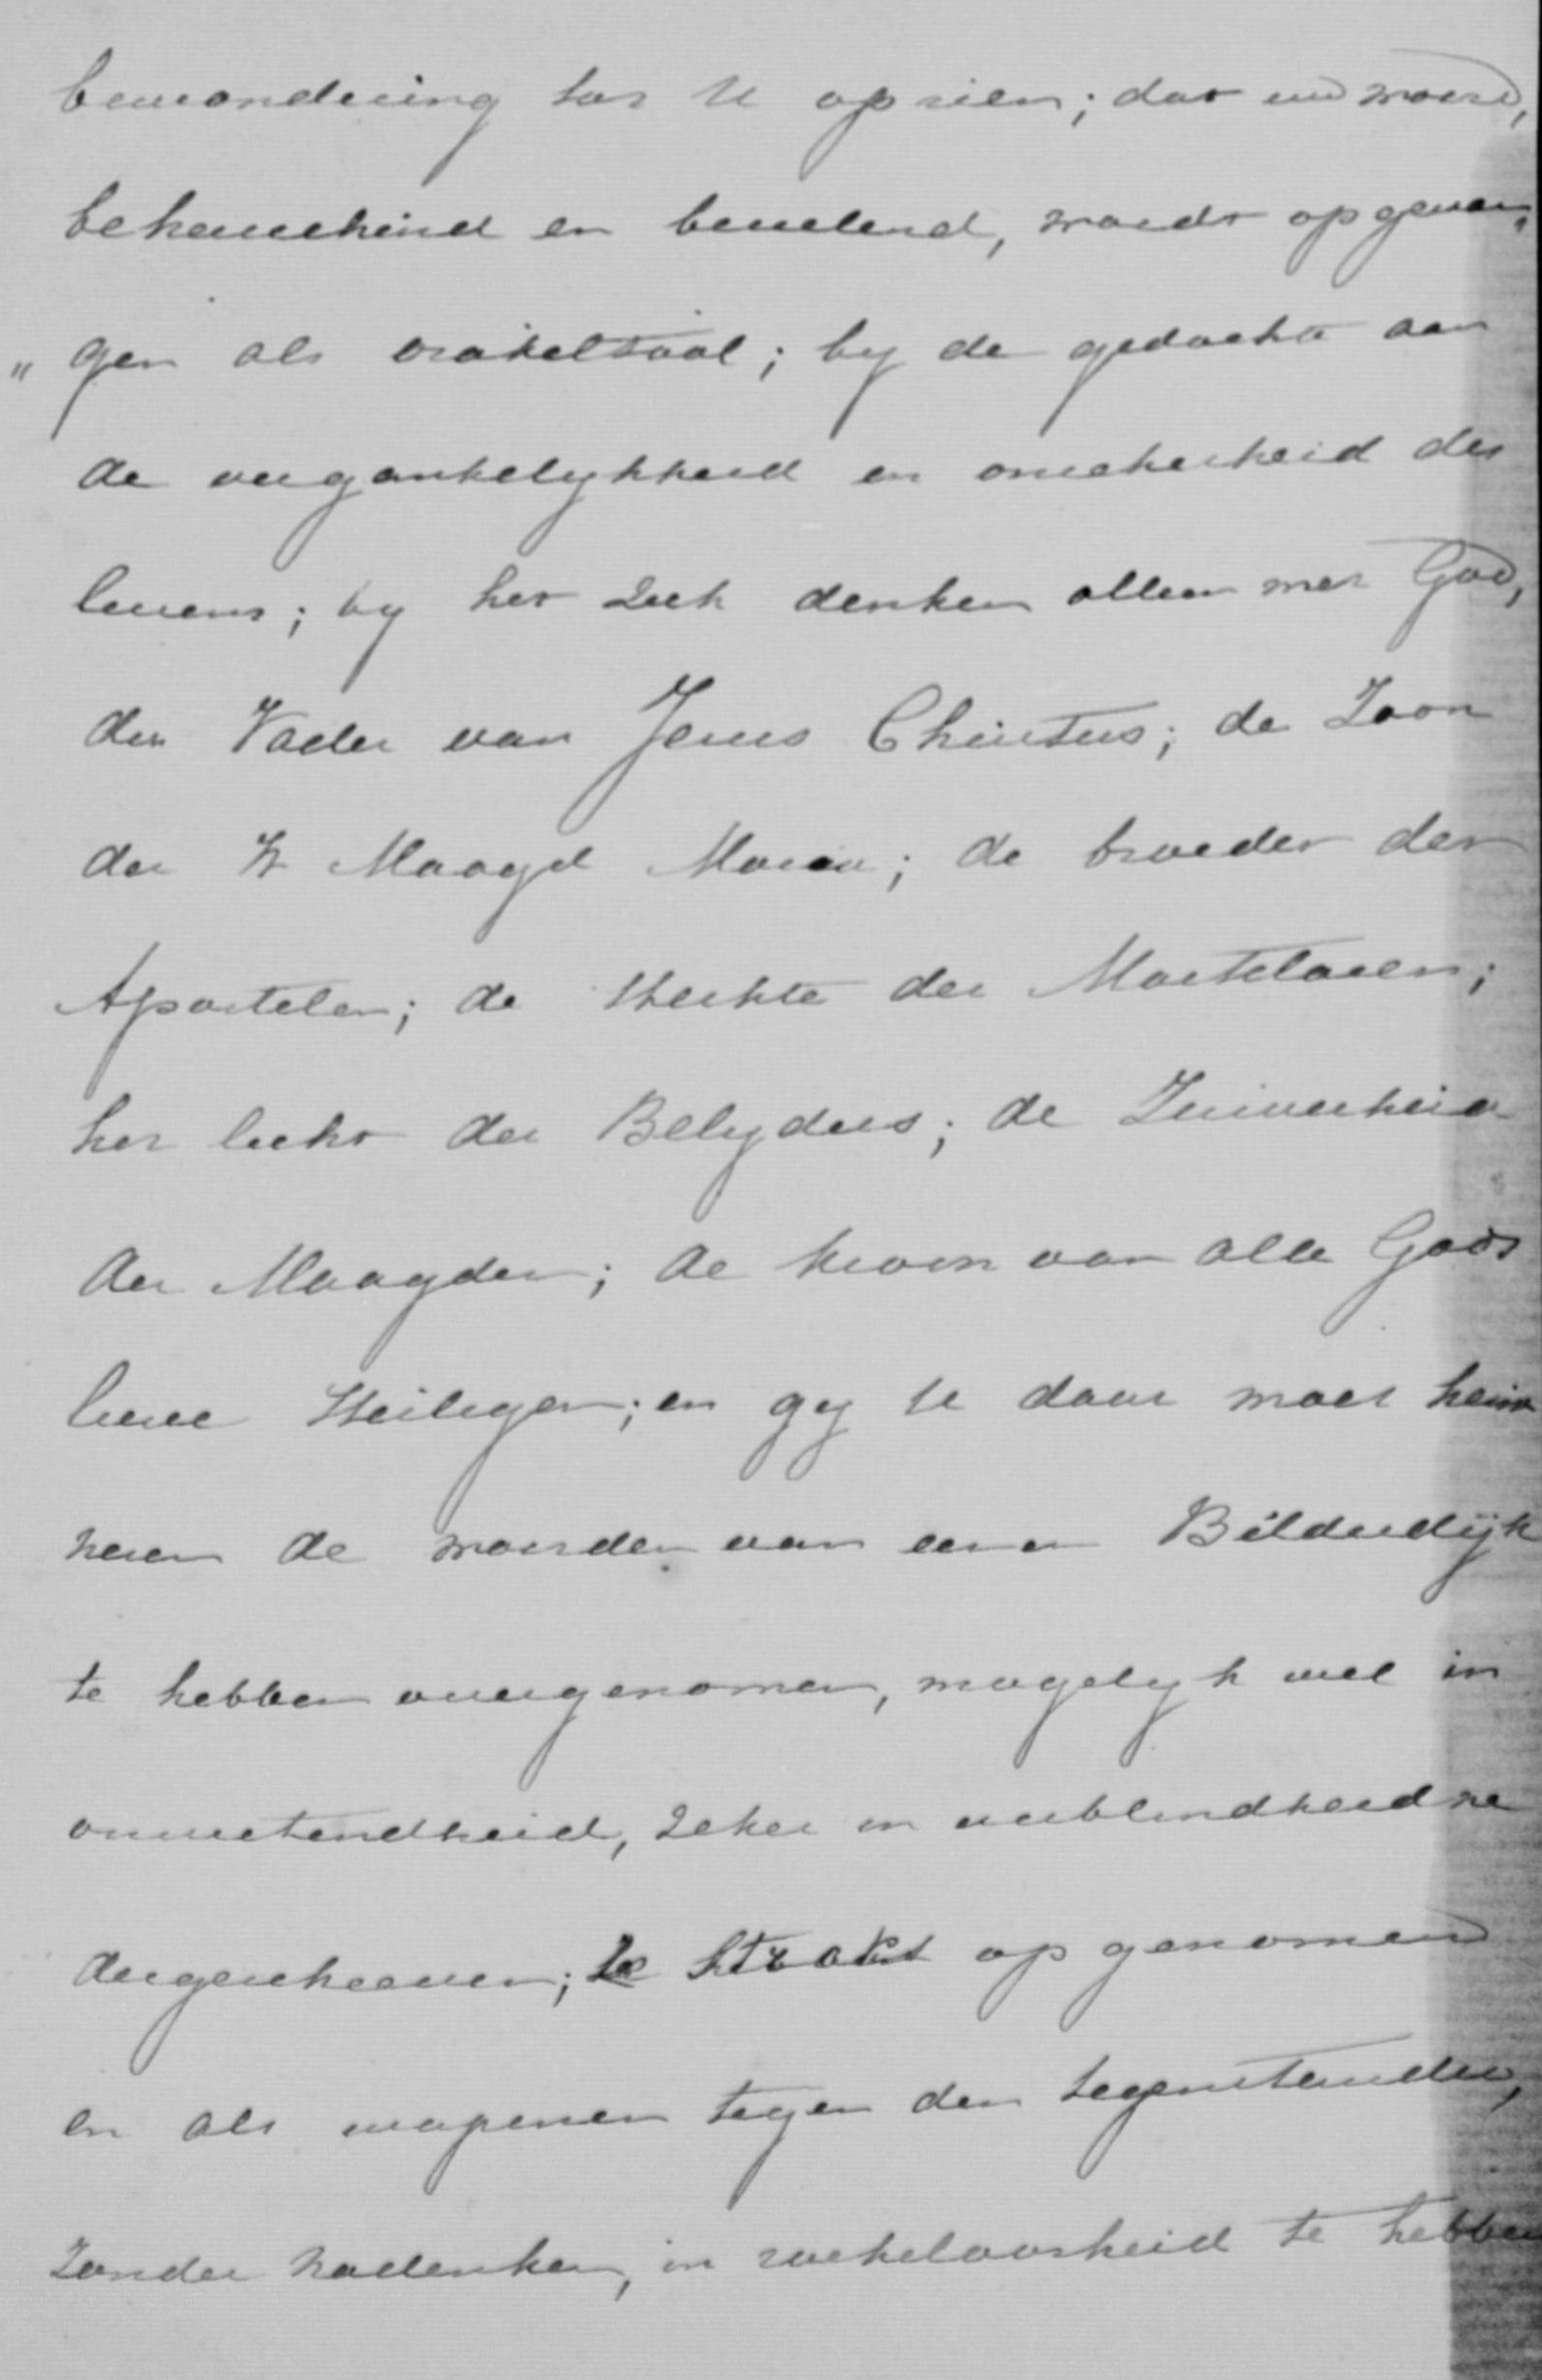 bewondering tot U opzien; dat uw woord,
beheerschend en bevelend, wordt opgevan„
„gen als orakeltaal; by de gedachte aan
de vergankelykheid en onzekerheid des
levens; by het zich denken alleen met God,
den Vader van Jesus Christus; de Zoon
der H Maagd Maria; de broeder der
Apostelen; de sterkte der Martelaren;
het licht der Belyders; de Zuiverheid
der Maagden; de kroon van alle Gods
lieve Heiligen; en gy U daar moet herin
neren de woorden van eenen Bilderdijk
te hebben overgenomen, mogelyk wel in
onwetendheid, zeker in verblindheid ne
dergeschreven; ze strakt opgenomen
en als wapenen tegen den tegenstander,
zonder nadenken, in roekeloosheid te hebben